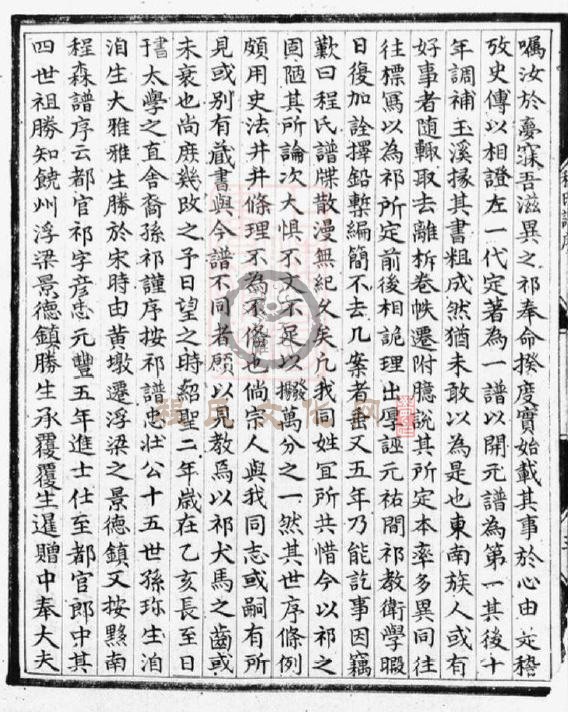 囑汝於寢寐吾滋異之祁奉命揆度實始載其事於心由是稽
攷史傳以相證左一代定著為一譜以開元譜為第一其後十
年調補玉溪掾其書粗成然猶未敢以為是也東南族人或有
好事者随輙取去離析卷帙遷附臆說其所定本率多異同往
往標寫以為祁所定前後相詭理出厚誣元祐間祁教衛學暇
日復加詮擇鉛槧編簡不去几案者啚又五年乃能訖事因竊
歎曰程氏譜牒散漫無紀久矣凡我同姓宜所共惜今以祁之
固陋其所論次大惧不文不足以撥萬分之一然其世序條例
頗用史法井井條理不為不俻也倘宗人與我同志或嗣有所
見或别有蔵書與今譜不同者願以見教焉以祁犬馬之齒或
未衰也尚庶幾攺之予日望之時紹聖二年歲在乙亥長至日
書于太學之直舍裔孫祁謹序按祁譜忠壮公十五世孫珎生洎
洎生大雅雅生勝於宋時由黄墩遷浮梁之景德鎮又按黟南
程森譜序云都官祁字彦忠元豐五年進士仕至都官郎中其
四世祖勝知饒州浮梁景德鎮勝生承覆覆生暹贈中奉大夫
程氏文化网